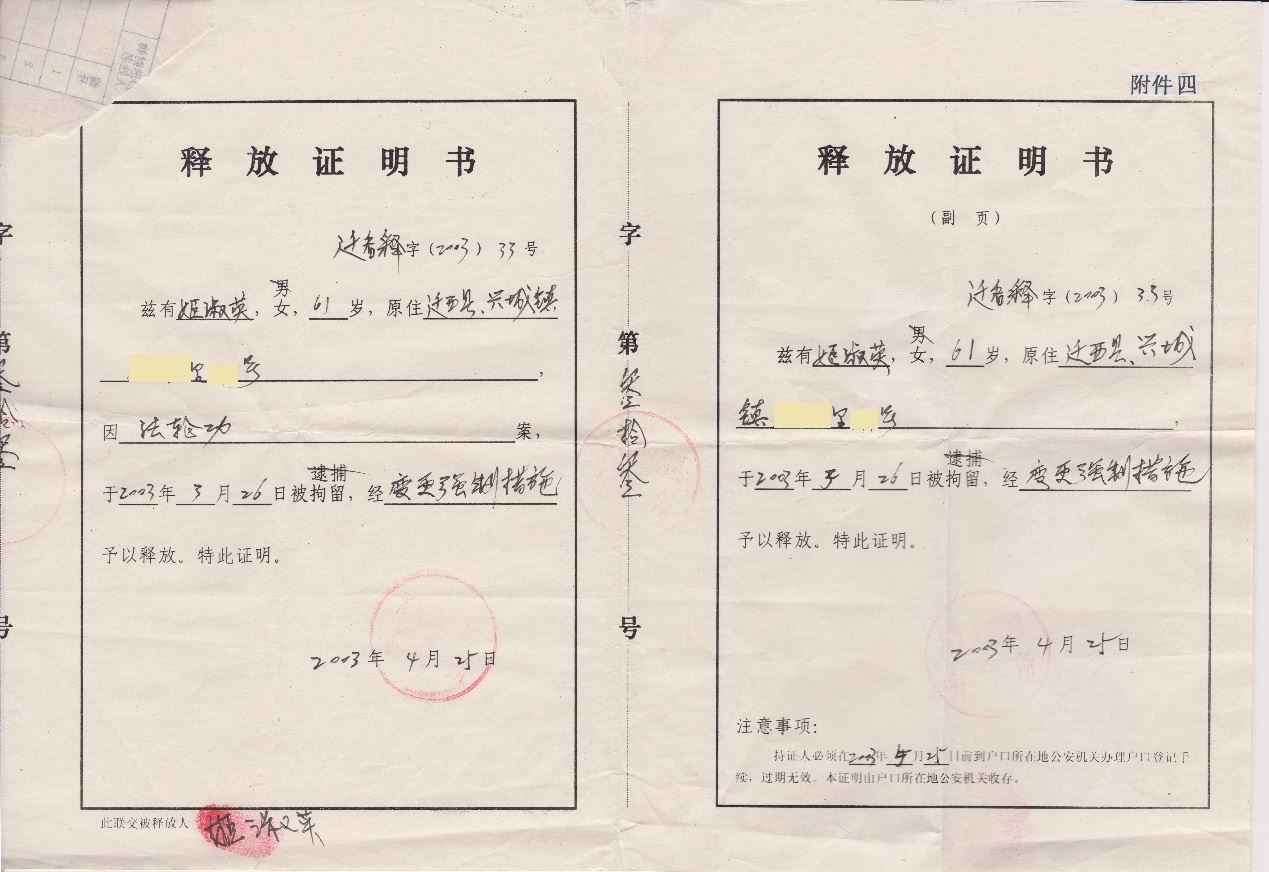 附件四
释放证明书
迁看释字(2003)33号
兹有姬淑英,男女,61岁,原住迁西县、兴城镇
里 号,
因 法轮功 案,
于2003年3月26日被逮捕拘留,经变更强制措施
予以释放。特此证明。
2003年4月25日
此联交被释放人 姬淑英
字
第叁拾叁
号
释放证明书
(副页)
迁看释字(2003)33号
兹有姬淑英,男女,61岁,原住迁西县、兴城
镇 里 号,
于2003年3月26日被逮捕拘留,经变更强制措施
予以释放。特此证明。
2003年4月25日
注意事项:
持证人必须在2003年 月25日前到户口所在地公安机关办理户口登记手
续,过期无效。本证明由户口所在地公安机关收存。